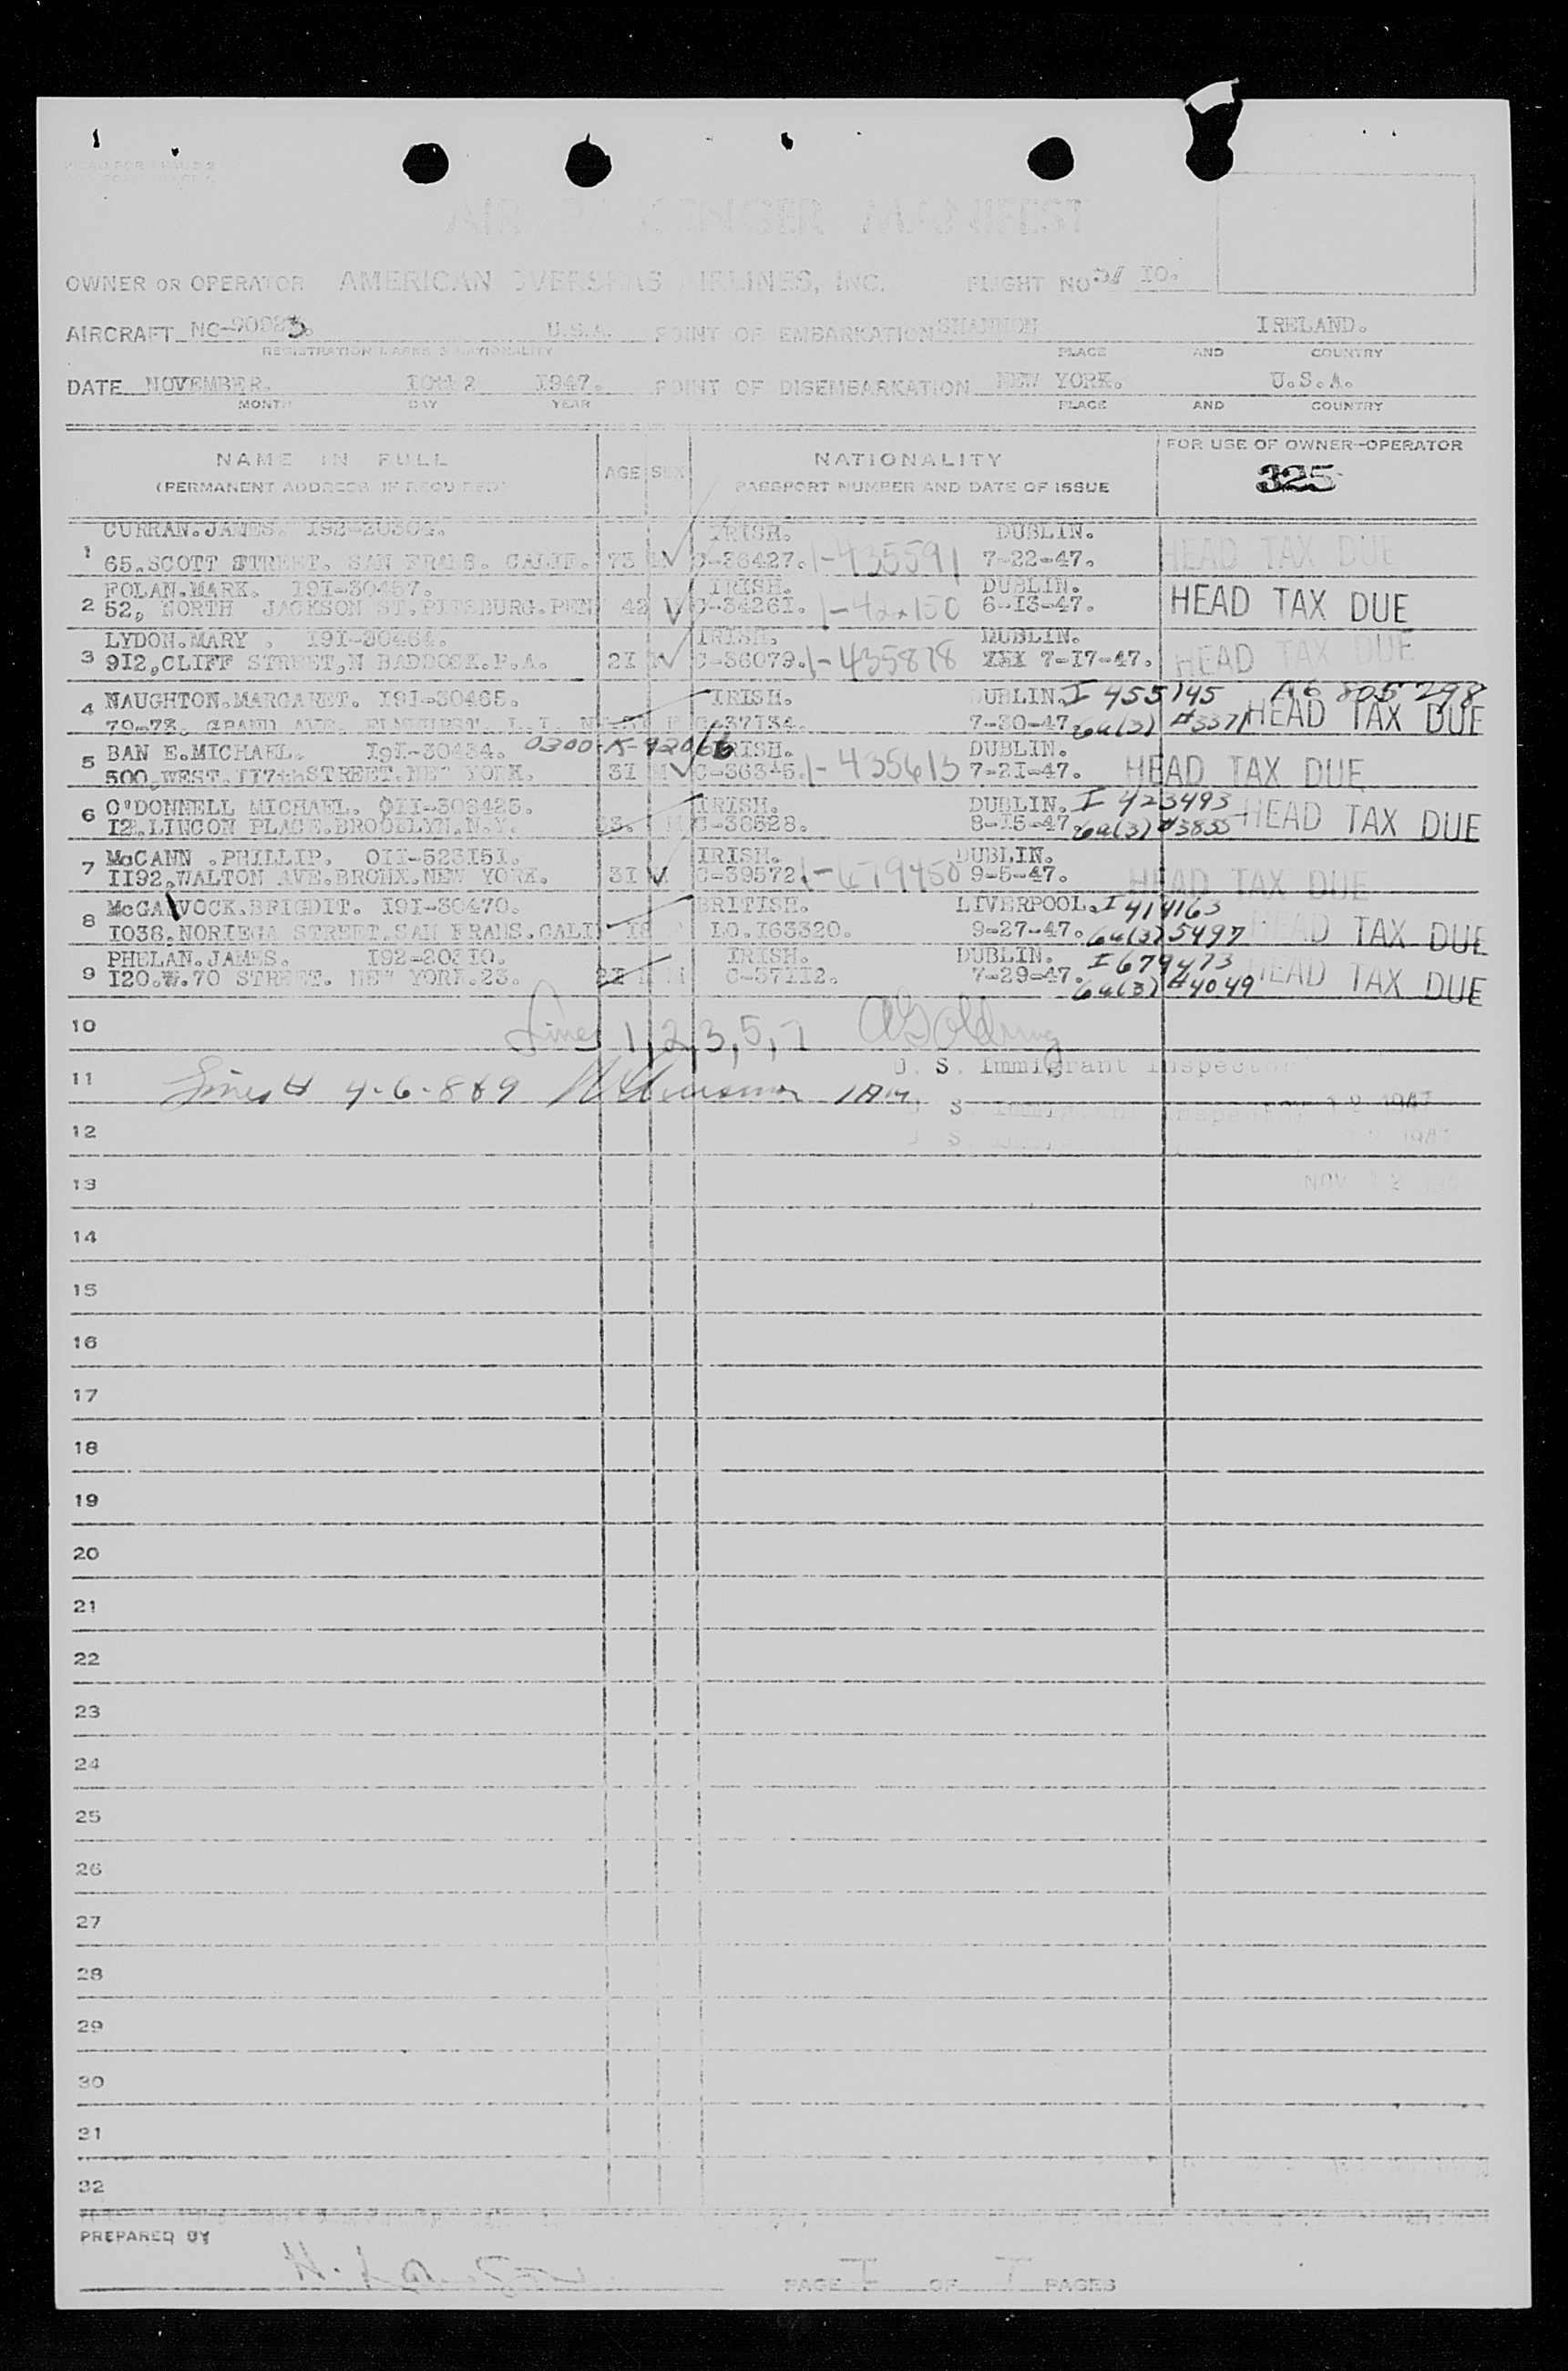 AIR PASSENGER MANIFEST
OWNER OR OPERATOR AMERICAN OVERSEAS AIRLINES, INC. FLIGHT NO IO.
AIRCRAFT NC-90923. U.S.A. POINT OF EMBARKATION SHANNON IRELAND.
REGISTRATION MARKS & NATIONALITY PLACE AND COUNTRY
DATE NOVEMBER. 1947. POINT OF DISEMBARKATION NEW YORK. U.S.A.
MONTH DAY YEAR PLACE AND COUNTRY
NAME IN FULL AGE SEX NATIONALITY FOR USE OF OWNER-OPERATOR
(PERMANENT ADDRESS IF REQUIRED) PASSPORT NUMBER AND DATE OF ISSUE 325
CURRAN.JAMES. I92-20304. IRISH. DUBLIN.
1 65.SCOTT STREET. SAN FRANS. CALIF. 73 C-36427. 1-435591 7-22-47. HEAD TAX DUE
FOLAN.MARK. I9I-30457. IRISH. DUBLIN.
2 52, NORTH JACKSON ST.PITSBURG.PEN 42 C-3426I. 6-I3-47. HEAD TAX DUE
LYDON.MARY . I9I-30464. IRISH. DUBLIN.
3 9I2,CLIFF STREET,N BADDOCK.P.A. 2I C-36079. 1-435878 7-I7-47. HEAD TAX DUE
4 NAUGHTON.MARGARET. I9I-30465. IRISH. DUBLIN. I 455145 A6 805 298
79-73. GRAND AVE. ELMHURST. L.I. N F C-37I34. 7-30-47. 6a(3) #3371 HEAD TAX DUE
5 BAN E.MICHAEL. I9I-30454. 0300-K-92066 IRISH. DUBLIN.
500.WEST.II7th STREET.NEW YORK. 3I M C-36345. 1-435613 7-2I-47. HEAD TAX DUE
6 O'DONNELL MICHAEL. OII-508425. IRISH. DUBLIN. I 423493
I2.LINCON PLACE.BROOKLYN.N.Y. M C-38528. 8-I5-47. 6a(3) #3855 HEAD TAX DUE
7 McCANN .PHILLIP. OII-523I5I. IRISH. DUBLIN.
II92.WALTON AVE.BRONX.NEW YORK. 3I C-39572. 1-679450 9-5-47. HEAD TAX DUE
8 McGAVOCK.BRIGDIT. I9I-30470. BRITISH. LIVERPOOL. I 414163
I038.NORIEGA STREET.SAN FRANS.CALI I8 LO.I63320. 9-27-47. 6a(3) 5497 HEAD TAX DUE
PHELAN.JAMES. I92-203I0. IRISH. DUBLIN. I 679473
9 I20.W.70 STREET. NEW YORK.23. 2I M C-37II2. 7-29-47. 6a(3) #4049 HEAD TAX DUE
10 Lines 1, 2, 3, 5, 7
U. S. Immigrant Inspector
11 Lines 4-6-8&9
12
13 NOV 12
14
15
16
17
18
19
20
21
22
23
24
25
26
27
28
29
30
31
32
PREPARED BY
PAGE I OF I PAGES